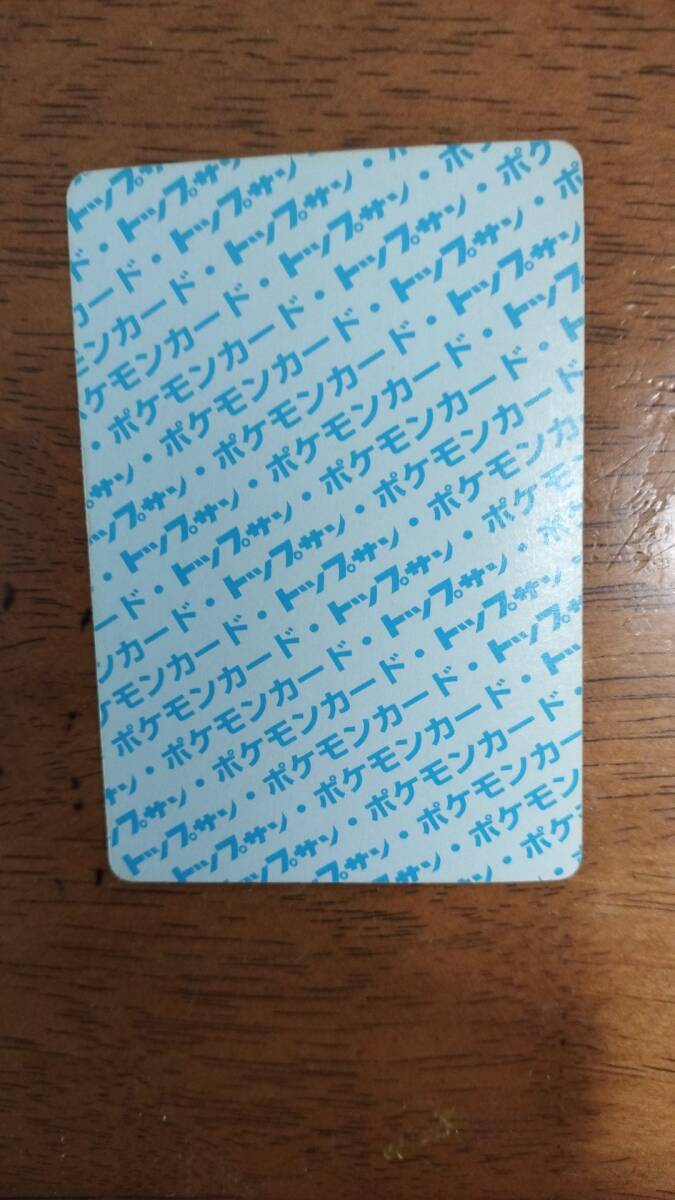 トップサン
ド・トップサン・ポ
カード・トップサン・ポケ
ンカード・トップサン・ポケ
ケモンカード・トップサン・ポ
・ポケモンカード・トップサン
サン・ポケモンカード・トップ
ップサン・ポケモンカード・ト
・トップサン・ポケモンカード
ード・トップサン・ポケモンカ
ンカード・トップサン・ポケモン
ケモンカード・トップサン・ポケ
ポケモンカード・トップサン・
・ポケモンカード・トップサン
サン・ポケモンカード・トップ
ップサン・ポケモンカード・ト
トップサン・ポケモンカード・
トップサン・ポケモンカード
トップサン・ポケモン
・ポケ